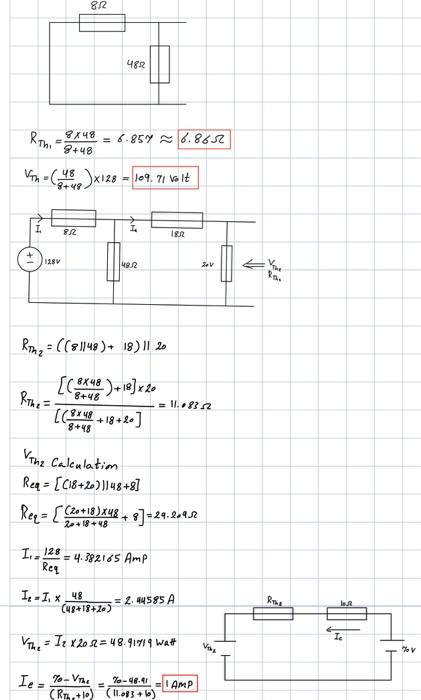 8Ω
48Ω
R_Th₁ = (8×48)/(8+48) = 6.857 ≈ 6.86Ω
V_Th = (48/(8+48)) × 128 = 109.71 Volt
I₁
8Ω
I₂
18Ω
128V
48Ω
20V
V_Th₂
R_Th₂
R_Th₂ = ((8||48) + 18) || 20
R_Th₂ = [((8×48)/(8+48)) + 18] × 20 / [((8×48)/(8+48) + 18 + 20] = 11.083 Ω
V_Th₂ Calculation
Req = [(18+20) || 48 + 8]
Req = [((20+18)×48)/(20+18+48) + 8] = 29.209Ω
I₁ = 128/Req = 4.382165 Amp
I₂ = I₁ × 48/(48+18+20) = 2.44585 A
V_Th₂ = I₂ × 20Ω = 48.91719 Watt
I_e = (70 - V_Th₂)/(R_Th₂ + 10) = (70 - 48.91)/(11.083 + 10) = 1 AMP
R_Th₂
10Ω
I_e
V_Th₂
70V